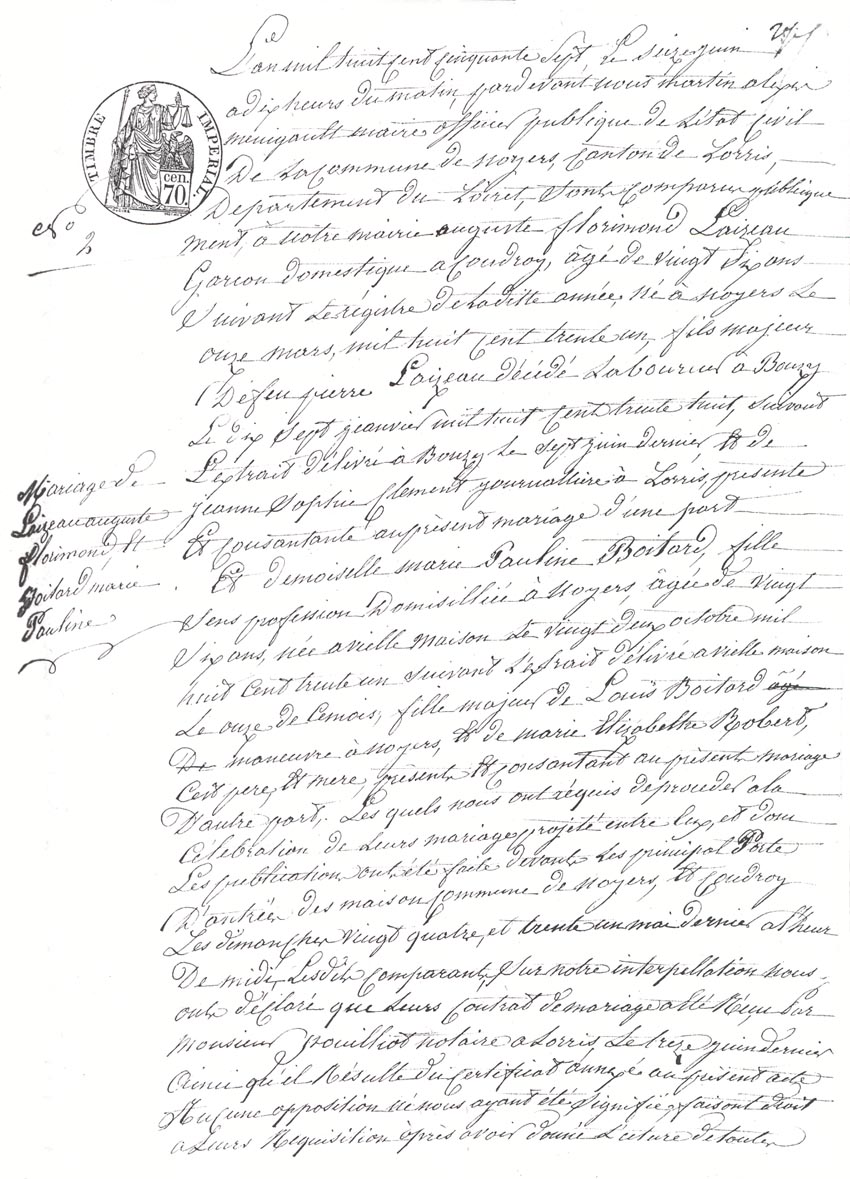 L'an mil huit cent cinquante sept, le seize juin
a dix heurs du matin, pardevant nous martin alexis
menigault maire officier publique de L'état Civil
De La Commune de Noyers, Canton de Lorris,
Departement du Loiret, Sont Comparu publique
ment, à Notre mairie auguste florimond Laizeau
Garcon domestique a Coudroy, âgé de vingt Six ans
Suivant Le régistre de Laditte année, Né à Noyers Le
onze mars, mil huit Cent trente un, fils majeur
De feu pierre Laizeau décédé Laboureur à Bouzy
Le dix Sept jeanvier mil huit Cent trente huit, Suivant
L'extrait délivré à Bouzy Le Sept juin dernier, Et de
jeanne Sophie Clement journallière à Lorris, presente
Et consantante au présent mariage d'une part
Et demoiselle marie Pauline Boitard, fille
Sens profession Domisilliée à Noyers, âgée de vingt
Six ans, Née a vielle maison Le vingt deux octobre mil
huit Cent trente un Suivant L'extrait délivré a vielle maison
Le onze de Cemois, fille majeur de Louis Boitard âgé
De maneuvre à Noyers, Et de marie Elizabethe Robert,
Cest pere, Et mere, présent Et consantant au présent mariage
D'autre part, Les quels nous ont réquis de proceder a la
Célébration de Leurs mariage projeté entre Eux, et dont
Les publication ont été faite devant Les principal Porte
D'antrée des maison Commune de Noyers, Et Coudroy
Les dimanches Vingt quatre, et trente un mai dernier a L'heur
De midi, Lesdit Comparant, Sur notre interpellation Nous
ont déclaré que Leurs Contrat de mariage a été Réçu Par
Monsieur pouilliot notaire a Lorris, Le treze juin dernier
Ainci qu'il Résulte du Certificat annexé au présent acte
Aucune opposition Ne nous ayant été Signifié, faisont droit
a Leurs Requisition après avoir donné L'ecture de toute
TIMBRE IMPERIAL
cen.
70.
No
2
Mariage de
Laizeau auguste
florimond, Et
Boitard marie
Pauline